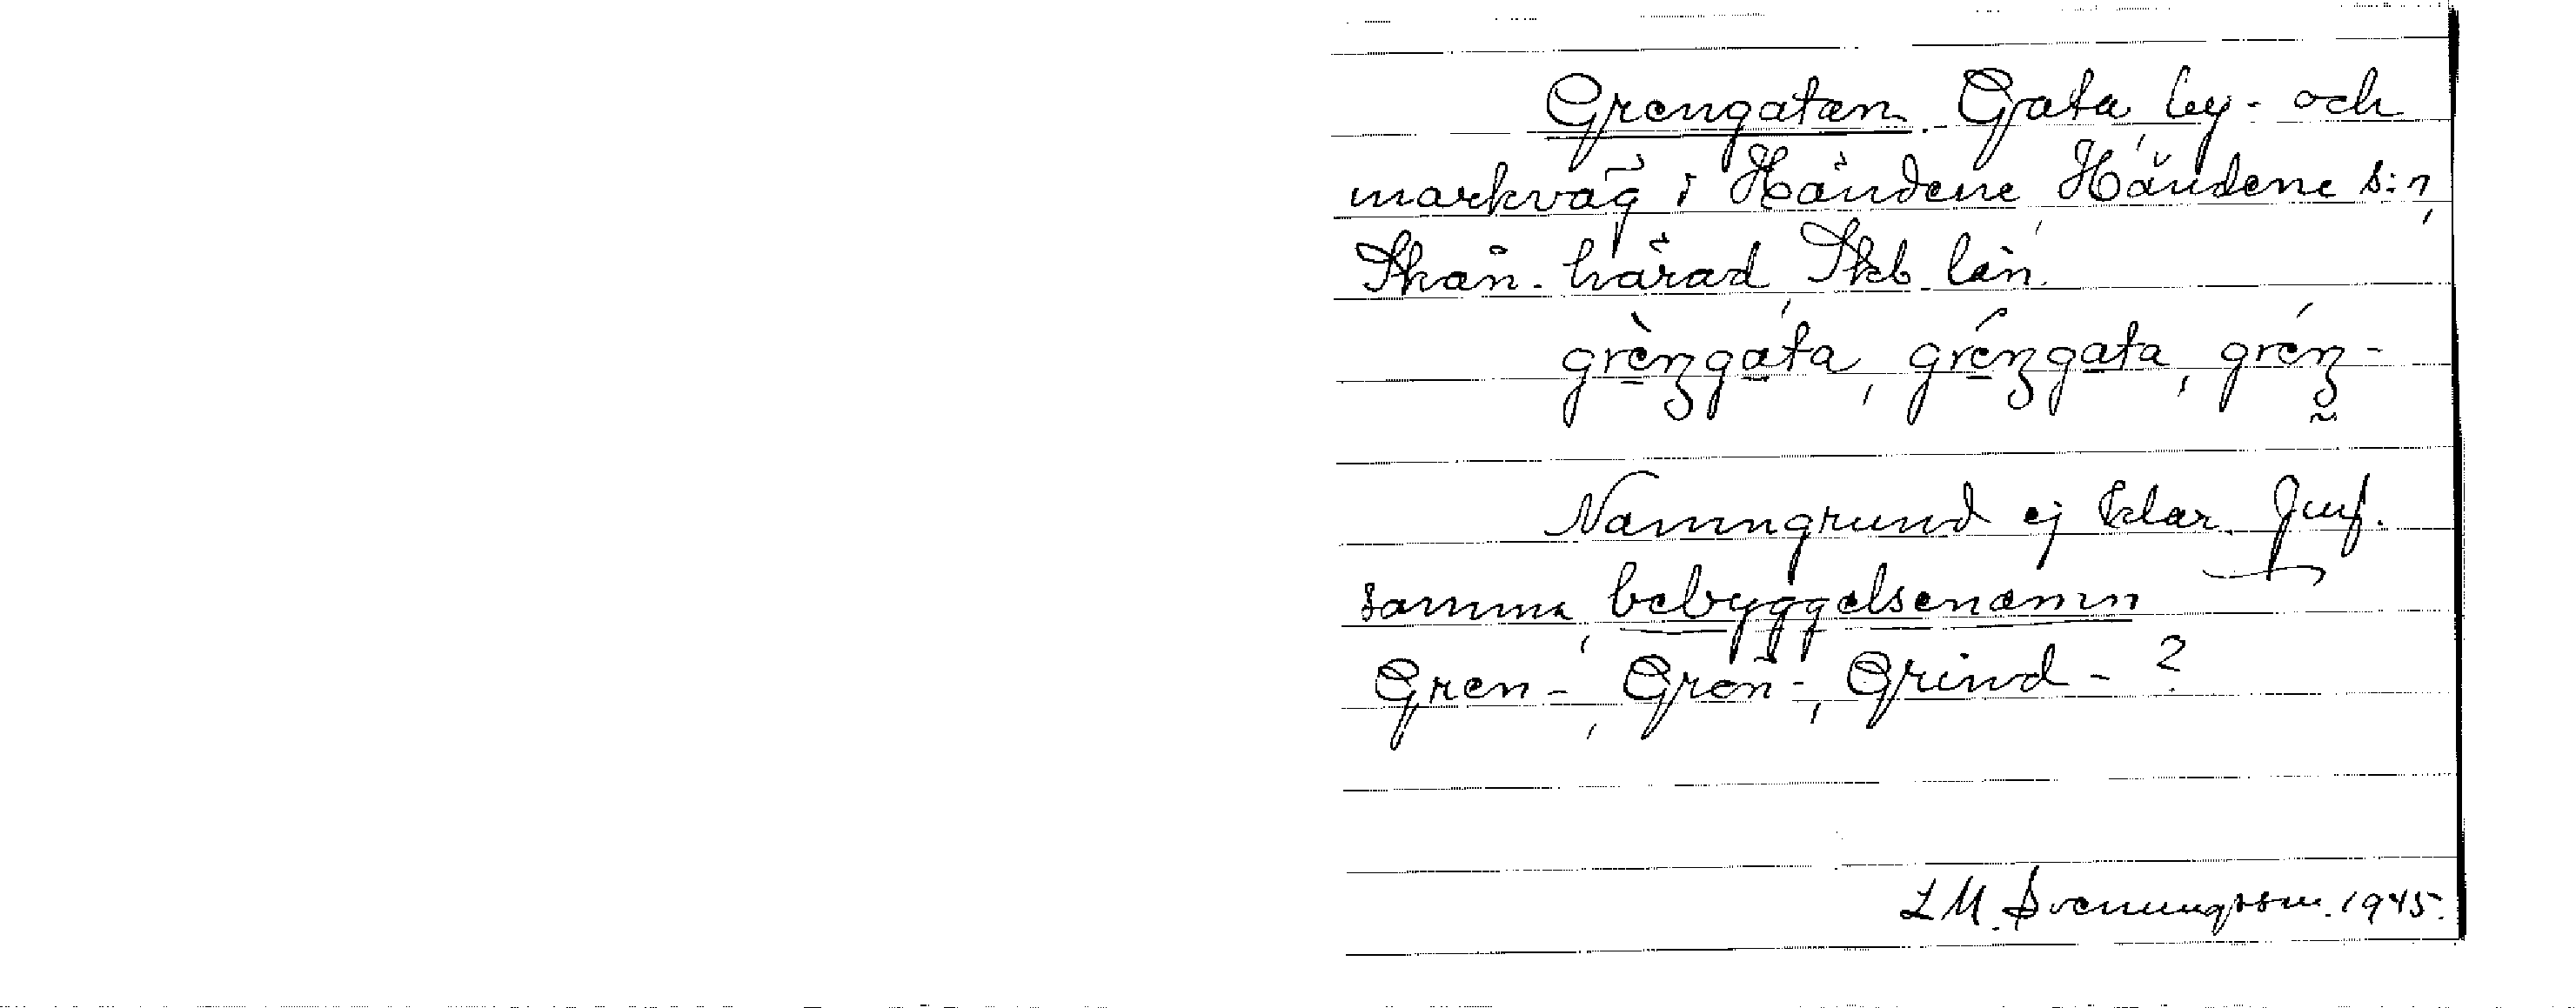 Grengatan. Gata, by- och
markväg i Händene, Händene s:n,
Skån. härad, Skb. län.
grèngata, gréngata, grén-
Namngrund ej klar. Jmf.
samma, bebyggelsenamn
Gren-, Grön-, Grind- ?
L M. Svenungsson. 1945.